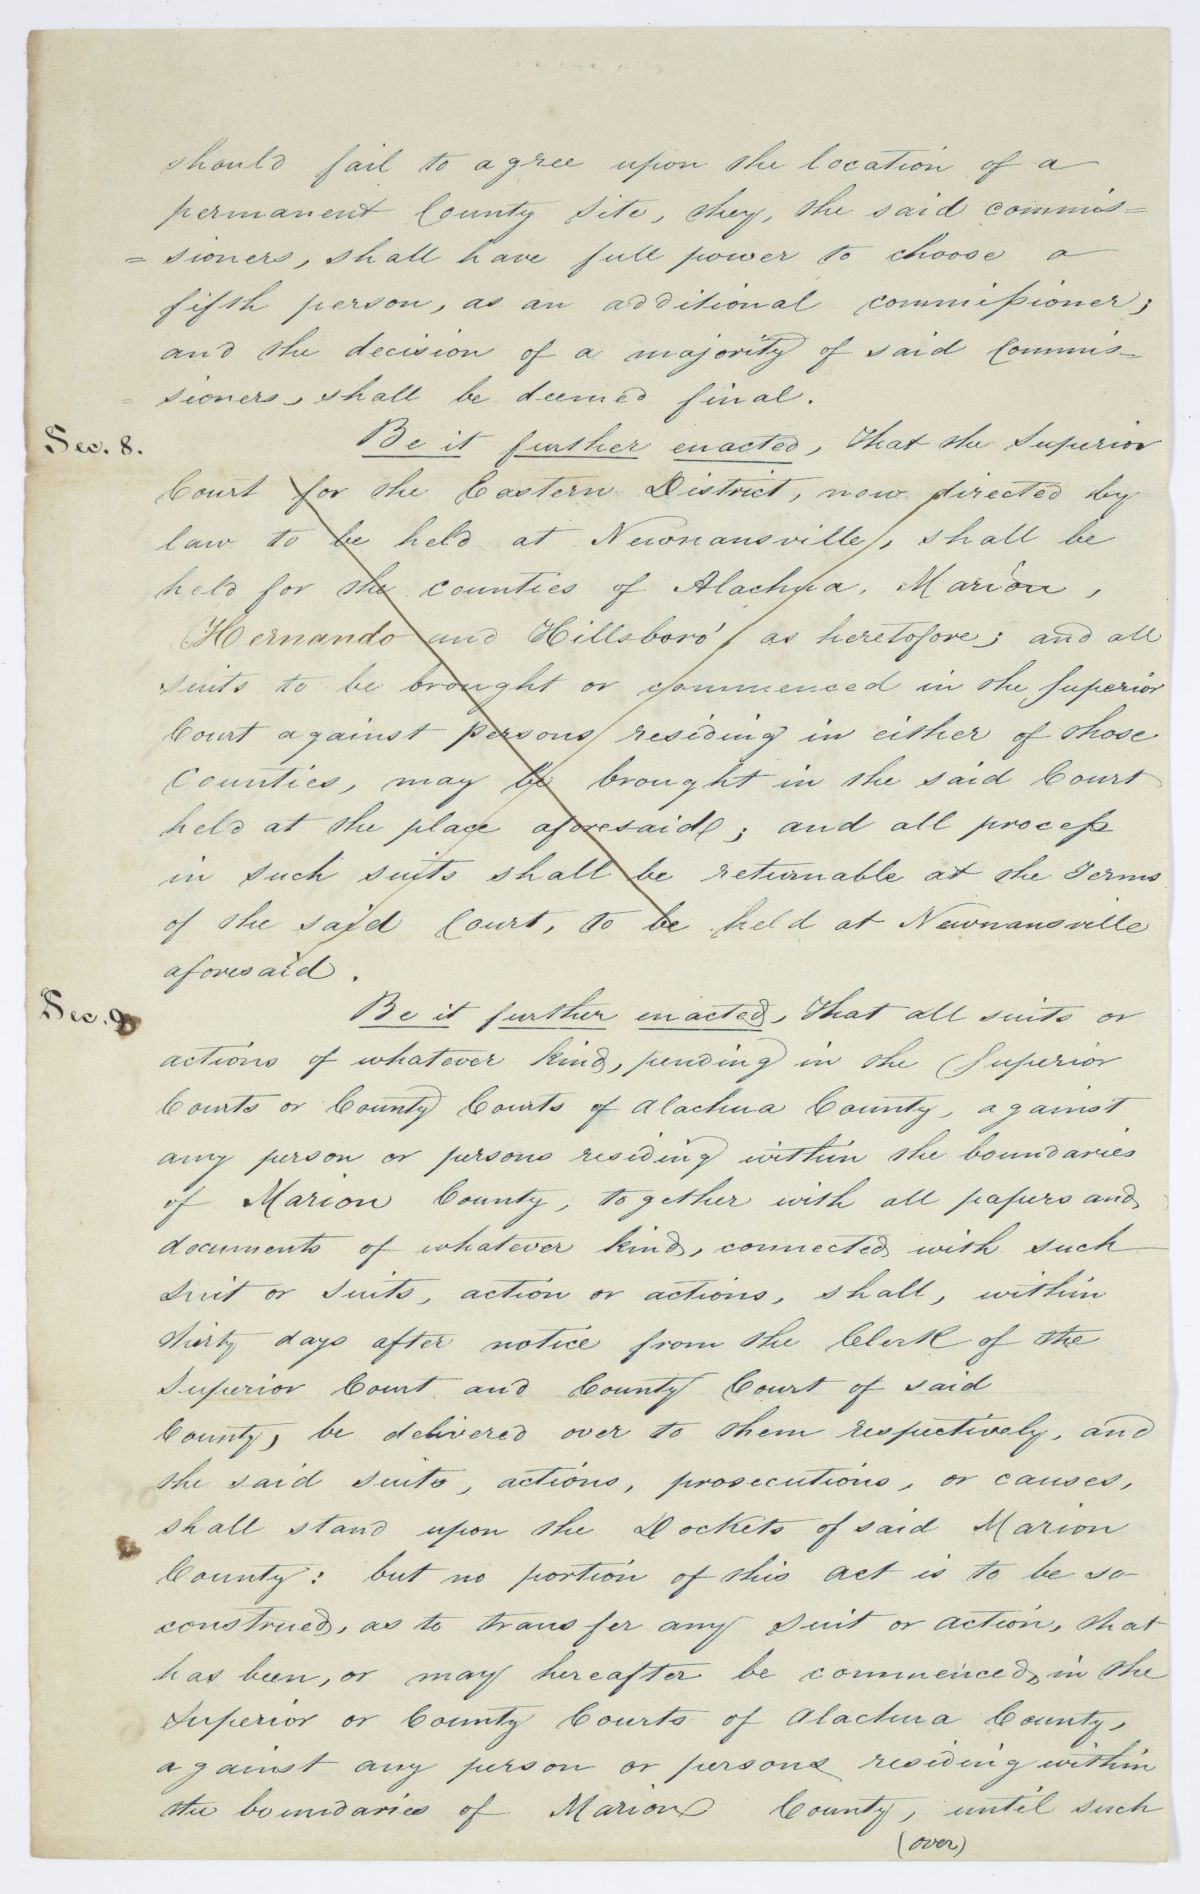 should fail to agree upon the location of a
permanent County Site, they, the said commis=
= sioners, shall have full power to choose a
fifth person, as an additional commissioner;
and the decision of a majority of said Commis=
= sioners, shall be deemed final.
Sec. 8. Be it further enacted, That the Superior
Court for the Eastern District, now directed by
law to be held at Newnansville, shall be
held for the counties of Alachua, Marion,
Hernando and Hillsboro', as heretofore; and all
suits to be brought or commenced in the Superior
Court against persons residing in either of those
Counties, may be brought in the said Court
held at the place aforesaid; and all process
in such suits shall be returnable at the Terms
of the said Court, to be held at Newnansville
aforesaid.
Sec. 9. Be it further enacted, That all suits or
actions of whatever kind, pending in the Superior
Courts or County Courts of Alachua County, against
any person or persons residing within the boundaries
of Marion County, together with all papers and
documents of whatever kind, connected with such
suit or suits, action or actions, shall, within
thirty days after notice from the Clerk of the
Superior Court and County Court of said
County, be delivered over to them respectively, and
the said suits, actions, prosecutions, or causes,
shall stand upon the Dockets of said Marion
County: but no portion of this act is to be so
construed, as to transfer any suit or action, that
has been, or may hereafter be commenced, in the
Superior or County Courts of Alachua County,
against any person or persons residing within
the boundaries of Marion County, until such
(over)